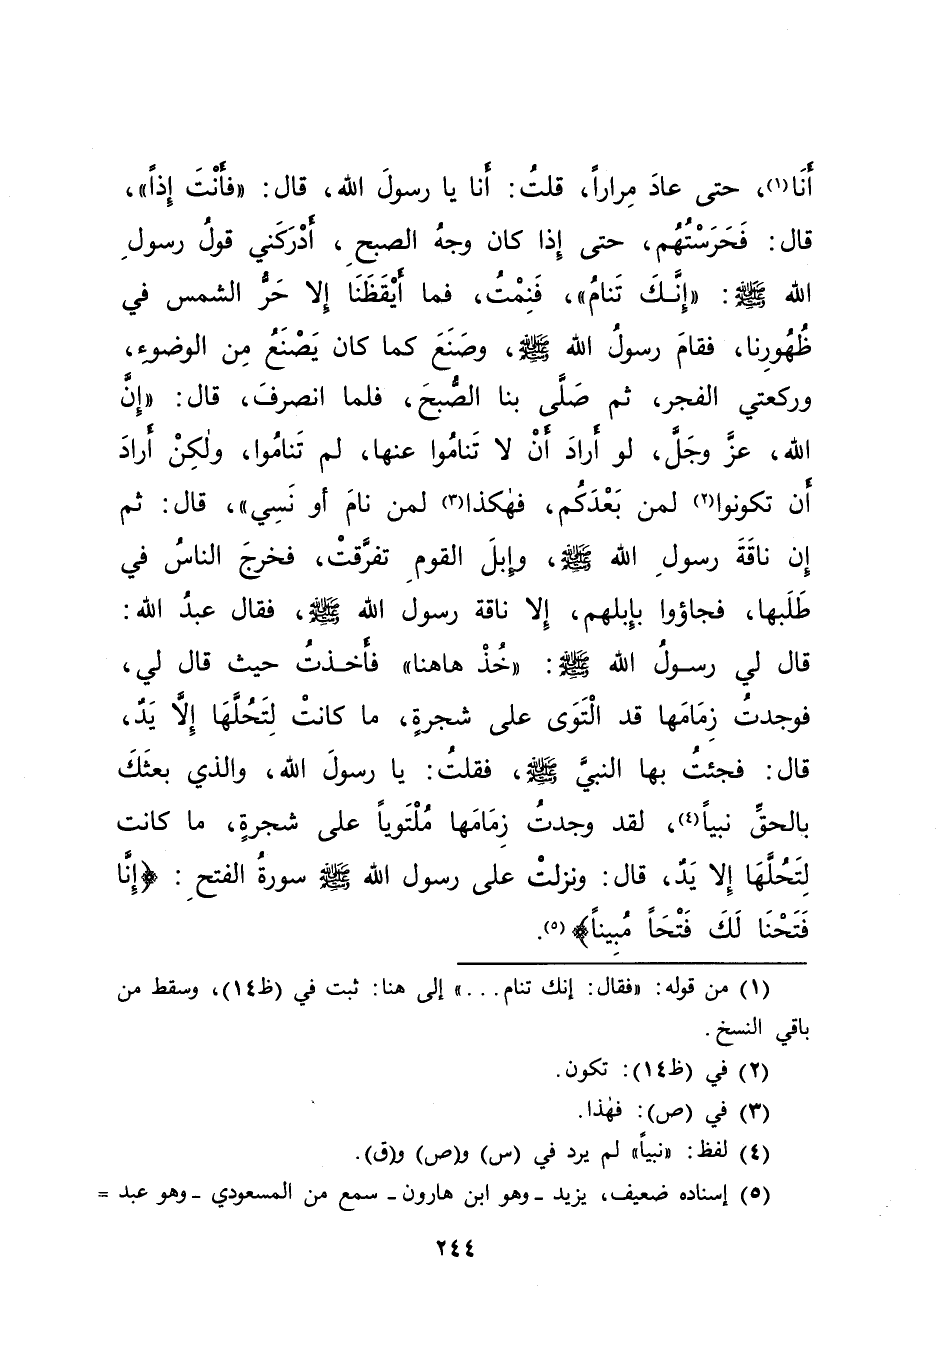 أَنَا(١)، حتى عادَ مِراراً، قلتُ: أَنا يا رسولَ الله، قال: «فأَنْتَ إِذاً»،
قال: فَحَرَسْتُهُم، حتى إِذا كان وجهُ الصبحِ، أَدْرَكَني قولُ رسولِ
الله ﷺ: «إِنَّكَ تَنامُ»، فَنِمْتُ، فما أَيْقَظَنَا إِلا حَرُّ الشمس في
ظُهُورِنا، فقامَ رسولُ الله ﷺ، وصَنَعَ كما كان يَصْنَعُ مِن الوضوءِ،
وركعتي الفجر، ثم صَلَّى بنا الصُّبحَ، فلما انصرفَ، قال: «إِنَّ
الله، عزَّ وجَلَّ، لو أَرادَ أَنْ لا تَنامُوا عنها، لم تَنامُوا، ولٰكِنْ أَرادَ
أَن تكونوا(٢) لمن بَعْدَكُم، فهٰكذا(٣) لمن نامَ أو نَسِي»، قال: ثم
إِن ناقَةَ رسولِ الله ﷺ، وإِبلَ القومِ تفرَّقتْ، فخرجَ الناسُ في
طَلَبها، فجاؤوا بإِبلهم، إِلا ناقة رسول الله ﷺ، فقال عبدُ الله:
قال لي رسولُ الله ﷺ: «خُذْ هاهنا» فأَخذتُ حيث قال لي،
فوجدتُ زِمَامَها قد الْتَوَى على شجرةٍ، ما كانتْ لِتَحُلَّهَا إِلَّا يَدٌ،
قال: فجئتُ بها النبيَّ ﷺ، فقلتُ: يا رسولَ الله، والذي بعثَكَ
بالحقِّ نبياً(٤)، لقد وجدتُ زِمَامَها مُلْتَوياً على شجرةٍ، ما كانت
لِتَحُلَّهَا إِلا يَدٌ، قال: ونزلتْ على رسول الله ﷺ سورةُ الفتحِ: ﴿إِنَّا
فَتَحْنَا لَكَ فَتْحَاً مُبِيناً﴾(٥).
(١) من قوله: «فقال: إنك تنام...» إلى هنا: ثبت في (ظ١٤)، وسقط من
باقي النسخ.
(٢) في (ظ١٤): تكون.
(٣) في (ص): فهٰذا.
(٤) لفظ: «نبياً» لم يرد في (س) و(ص) و(ق).
(٥) إسناده ضعيف، يزيد ـ وهو ابن هارون ـ سمع من المسعودي ـ وهو عبد =
٢٤٤